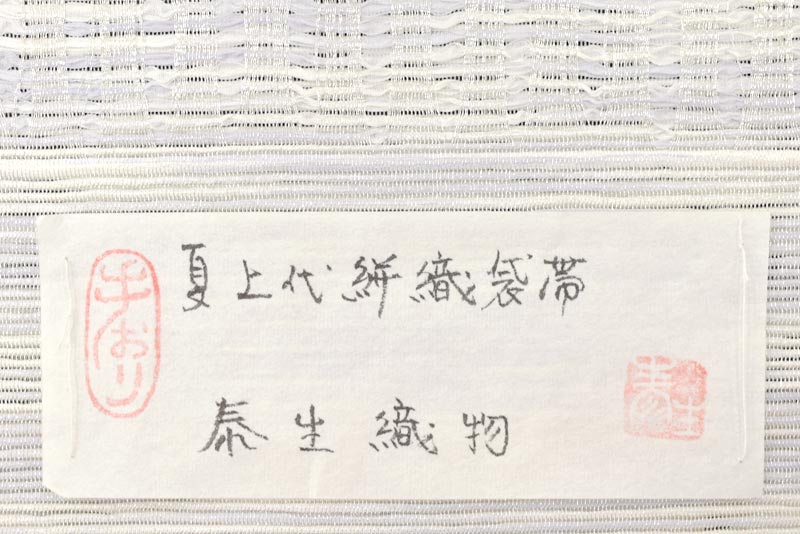 手おり
夏上代絣織袋帯
泰生織物